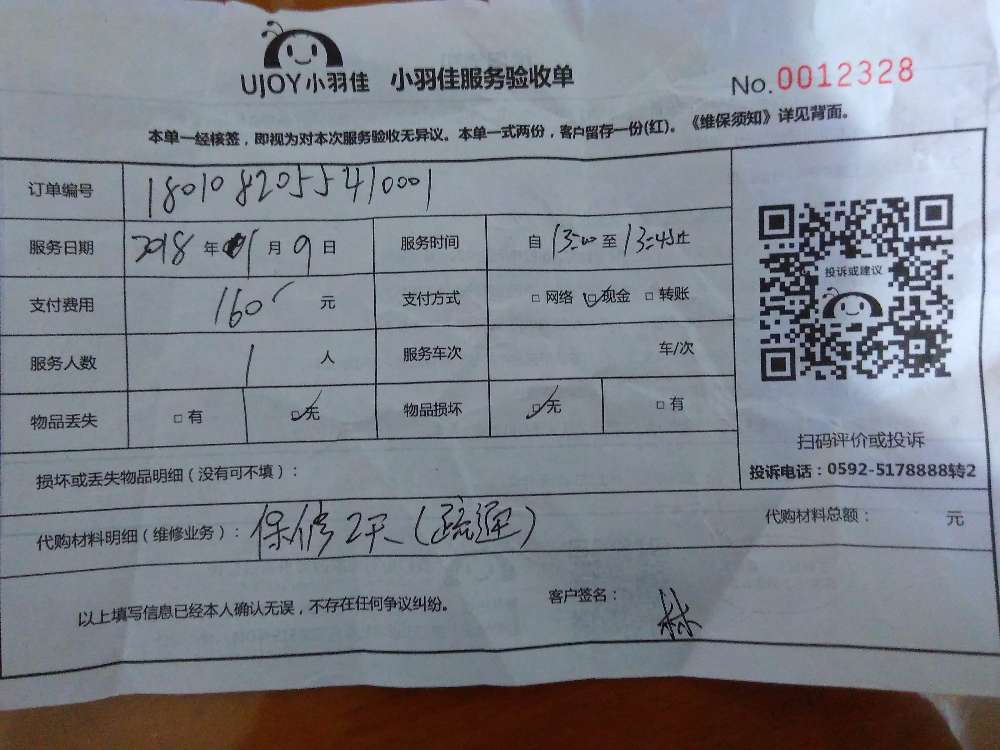 UJOY小羽佳 小羽佳服务验收单 No.0012328
本单一经核签，即视为对本次服务验收无异议。本单一式两份，客户留存一份(红)。《维保须知》详见背面。
订单编号 1801082055410001
服务日期 2018年1月9日 服务时间 自13:00至13:45止
支付费用 160元 支付方式 □网络 ☑现金 □转账
服务人数 1人 服务车次 车/次
物品丢失 □有 ☑无 物品损坏 ☑无 □有
投诉或建议
扫码评价或投诉
投诉电话：0592-5178888转2
损坏或丢失物品明细（没有可不填）：
代购材料明细（维修业务）：保修2天（疏通） 代购材料总额： 元
以上填写信息已经本人确认无误，不存在任何争议纠纷。 客户签名：林